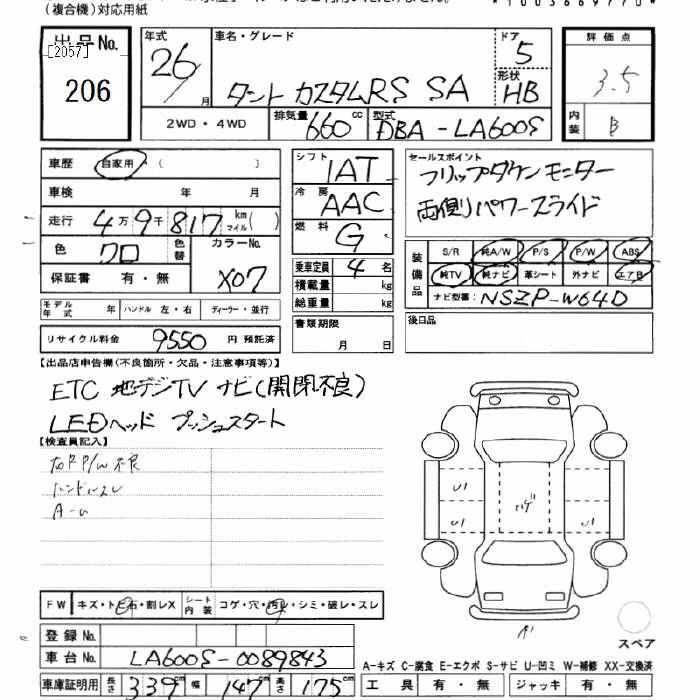 (複合機)対応用紙
*1003669770*
出品No.
[2057]
206
年式
26
月
車名・グレード
タント カスタムRS SA
ドア
5
形状
HB
2WD・4WD
排気量
660
cc
型式
DBA-LA600S
評価点
3.5
内装
B
車歴
自家用
( )
車検
年 月
走行
4万9千817
km
マイル
( )
色
クロ
色替
カラーNo.
X07
保証書
有・無
モデル年式
年
ハンドル
左・右
ディーラー・並行
リサイクル料金
9550
円
預託済
シフト
IAT
冷房
AAC
燃料
G
乗車定員
4
名
積載量
kg
総重量
kg
書類期限
月 日
セールスポイント
フリップダウンモニター
両側パワースライド
装備品
S/R
純A/W
P/S
P/W
ABS
純TV
純ナビ
革シート
外ナビ
エアB
ナビ型番:
NSZP-W64D
後日品
【出品店申告欄(不良箇所・欠品・注意事項等)】
ETC 地デジTV ナビ(開閉不良)
LEDヘッド プッシュスタート
【検査員記入】
P/W不良
ハンドルスレ
A-U
U1
U1
U1
U1
ハゲ
スペア
FW
キズ・トビ石・割レX
シート内装
コゲ・穴・汚レ・シミ・破レ・スレ
登録No.
車台No.
LA600S-0089843
車庫証明用
長さ
339
cm
幅
147
cm
高さ
175
cm
A-キズ C-腐食 E-エクボ S-サビ U-凹ミ W-補修 XX-交換済
工具
有・無
ジャッキ
有・無